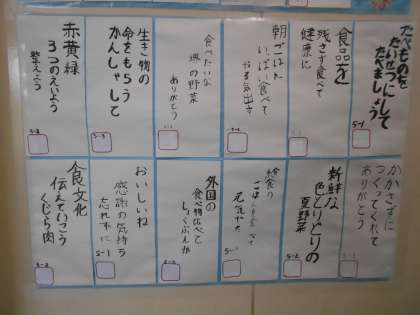 たべものを
たいせつにして
たべましょう
食品を
残さず食べて
健康に
朝ごはん
いっぱい食べて
やる気出す
食べたいな
旬の野菜
ありがとう
生き物の
命をもらう
かんしゃして
5-3
赤黄緑
3つのえいよう
整えよう
5-3
かかさずに
つくってくれて
ありがとう
5-1
新鮮な
色とりどりの
夏野菜
5-2
給食の
ごはんを食べて
元気だな
5-
外国の
食べ物比べて
しょくぶんか
おいしいね
感謝の気持ち
忘れずに
5-1
食文化
伝えていこう
くじら肉
5-2